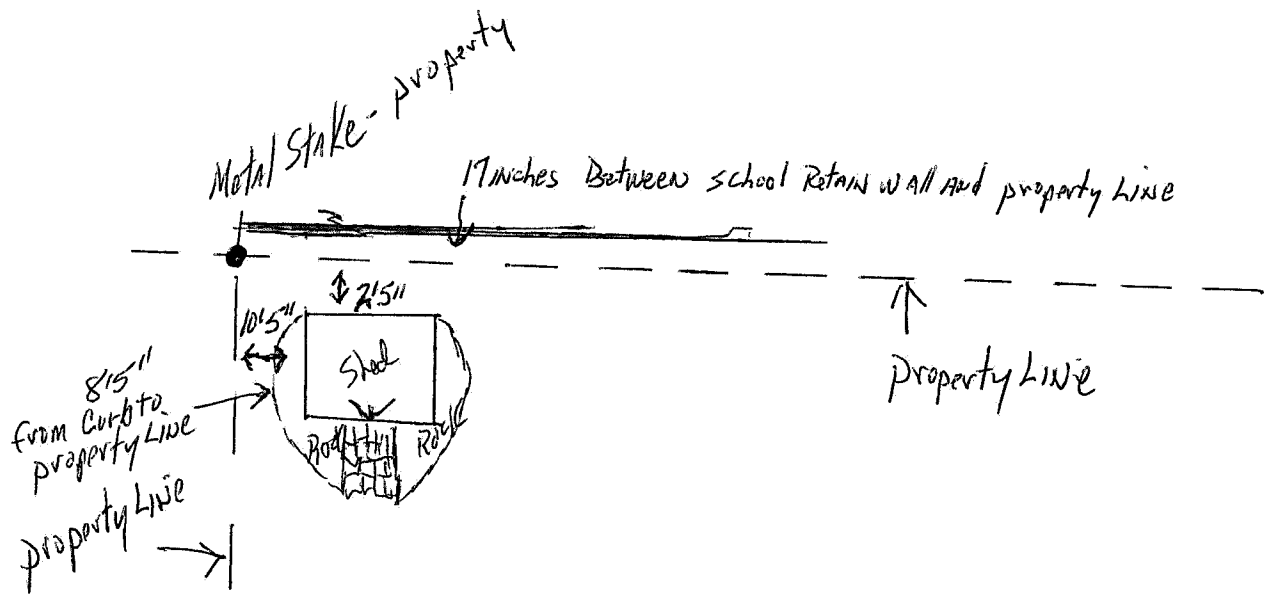 Metal Stake - property
17 inches Between school Retain wall And property Line
2'5"
10'5"
Shed
8'5"
from Curb to
property Line
Rock Rock
property Line
property Line